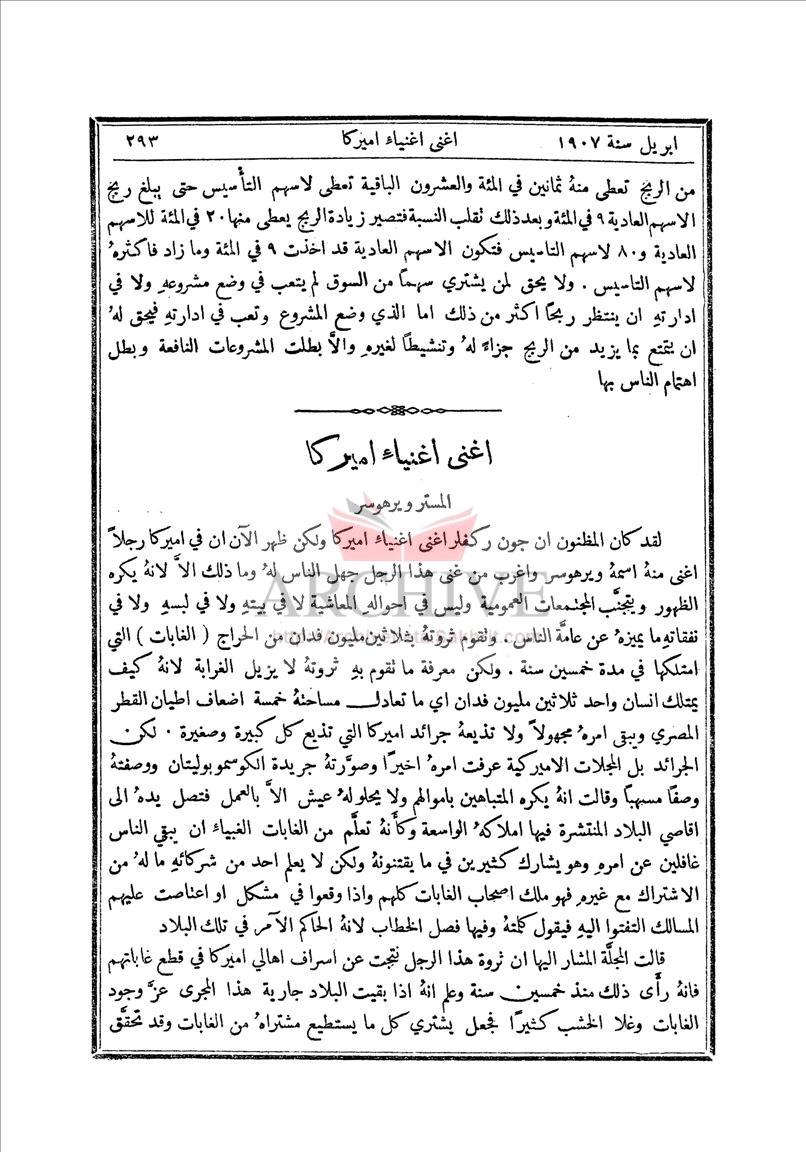 ابريل سنة ١٩٠٧ اغنى اغنياء اميركا ٢٩٣
من الربح تعطى منهُ ثمانين في المئة والعشرون الباقية تعطى لاسهم التأسيس حتى يبلغ ربح
الاسهم العادية ٩ في المئة وبعد ذلك تقلب النسبة فتصير زيادة الربح يعطى منها ٢٠ في المئة للاسهم
العادية و٨٠ لاسهم التاسيس فتكون الاسهم العادية قد اخذت ٩ في المئة وما زاد فاكثرهُ
لاسهم التاسيس . ولا يحق لمن يشتري سهماً من السوق لم يتعب في وضع مشروعهِ ولا في
ادارتهِ ان ينتظر ربحاً اكثر من ذلك اما الذي وضع المشروع وتعب في ادارتهِ فيحق لهُ
ان يتمتع بما يزيد من الربح جزاءً لهُ وتنشيطاً لغيرهِ والاَّ بطلت المشروعات النافعة وبطل
اهتمام الناس بها
اغنى اغنياء اميركا
المستر ويرهوسر
لقد كان المظنون ان جون ركفلر اغنى اغنياء اميركا ولكن ظهر الآن ان في اميركا رجلاً
اغنى منهُ اسمهُ ويرهوسر واغرب من غنى هذا الرجل جهل الناس لهُ وما ذلك الاَّ لانهُ يكره
ARCHIVE
الظهور ويتجنَّب المجتمعات العمومية وليس في احوالهِ المعاشية لا في بيتهِ ولا في لبسهِ ولا في
نفقاتهِ ما يميزهُ عن عامَّة الناس . ولقوم ثروتهُ بثلاثين مليون فدان من الحراج ( الغابات ) التي
امتلكها في مدة خمسين سنة . ولكن معرفة ما تقوم بهِ ثروتهُ لا يزيل الغرابة لانهُ كيف
يمتلك انسان واحد ثلاثين مليون فدان اي ما تعادل مساحتهُ خمسة اضعاف اطيان القطر
المصري ويبقى امرهُ مجهولاً ولا تذيعهُ جرائد اميركا التي تذيع كل كبيرة وصغيرة . لكن
الجرائد بل المجلات الاميركية عرفت امرهُ اخيراً وصوَّرتهُ جريدة الكوسموبوليتان ووصفتهُ
وصفاً مسهباً وقالت انهُ يكره المتباهين باموالهم ولا يحلو لهُ عيش الاَّ بالعمل فتصل يدهُ الى
اقاصي البلاد المنتشرة فيها املاكهُ الواسعة وكأنهُ تعلَّم من الغابات الغبياء ان يبقي الناس
غافلين عن امرهِ وهو يشارك كثيرين في ما يقتنونهُ ولكن لا يعلم احد من شركائهِ ما لهُ من
الاشتراك مع غيرهِ فهو ملك اصحاب الغابات كلهم واذا وقعوا في مشكل او اعتاصت عليهم
المسالك التفتوا اليهِ فيقول كلمتهُ وفيها فصل الخطاب لانهُ الحاكم الآمر في تلك البلاد
قالت المجلَّة المشار اليها ان ثروة هذا الرجل نتجت عن اسراف اهالي اميركا في قطع غاباتهم
فانهُ رأى ذلك منذ خمسين سنة وعلم انهُ اذا بقيت البلاد جارية هذا المجرى عزَّ وجود
الغابات وغلا الخشب كثيراً فجعل يشتري كل ما يستطيع مشتراهُ من الغابات وقد تحقَّق